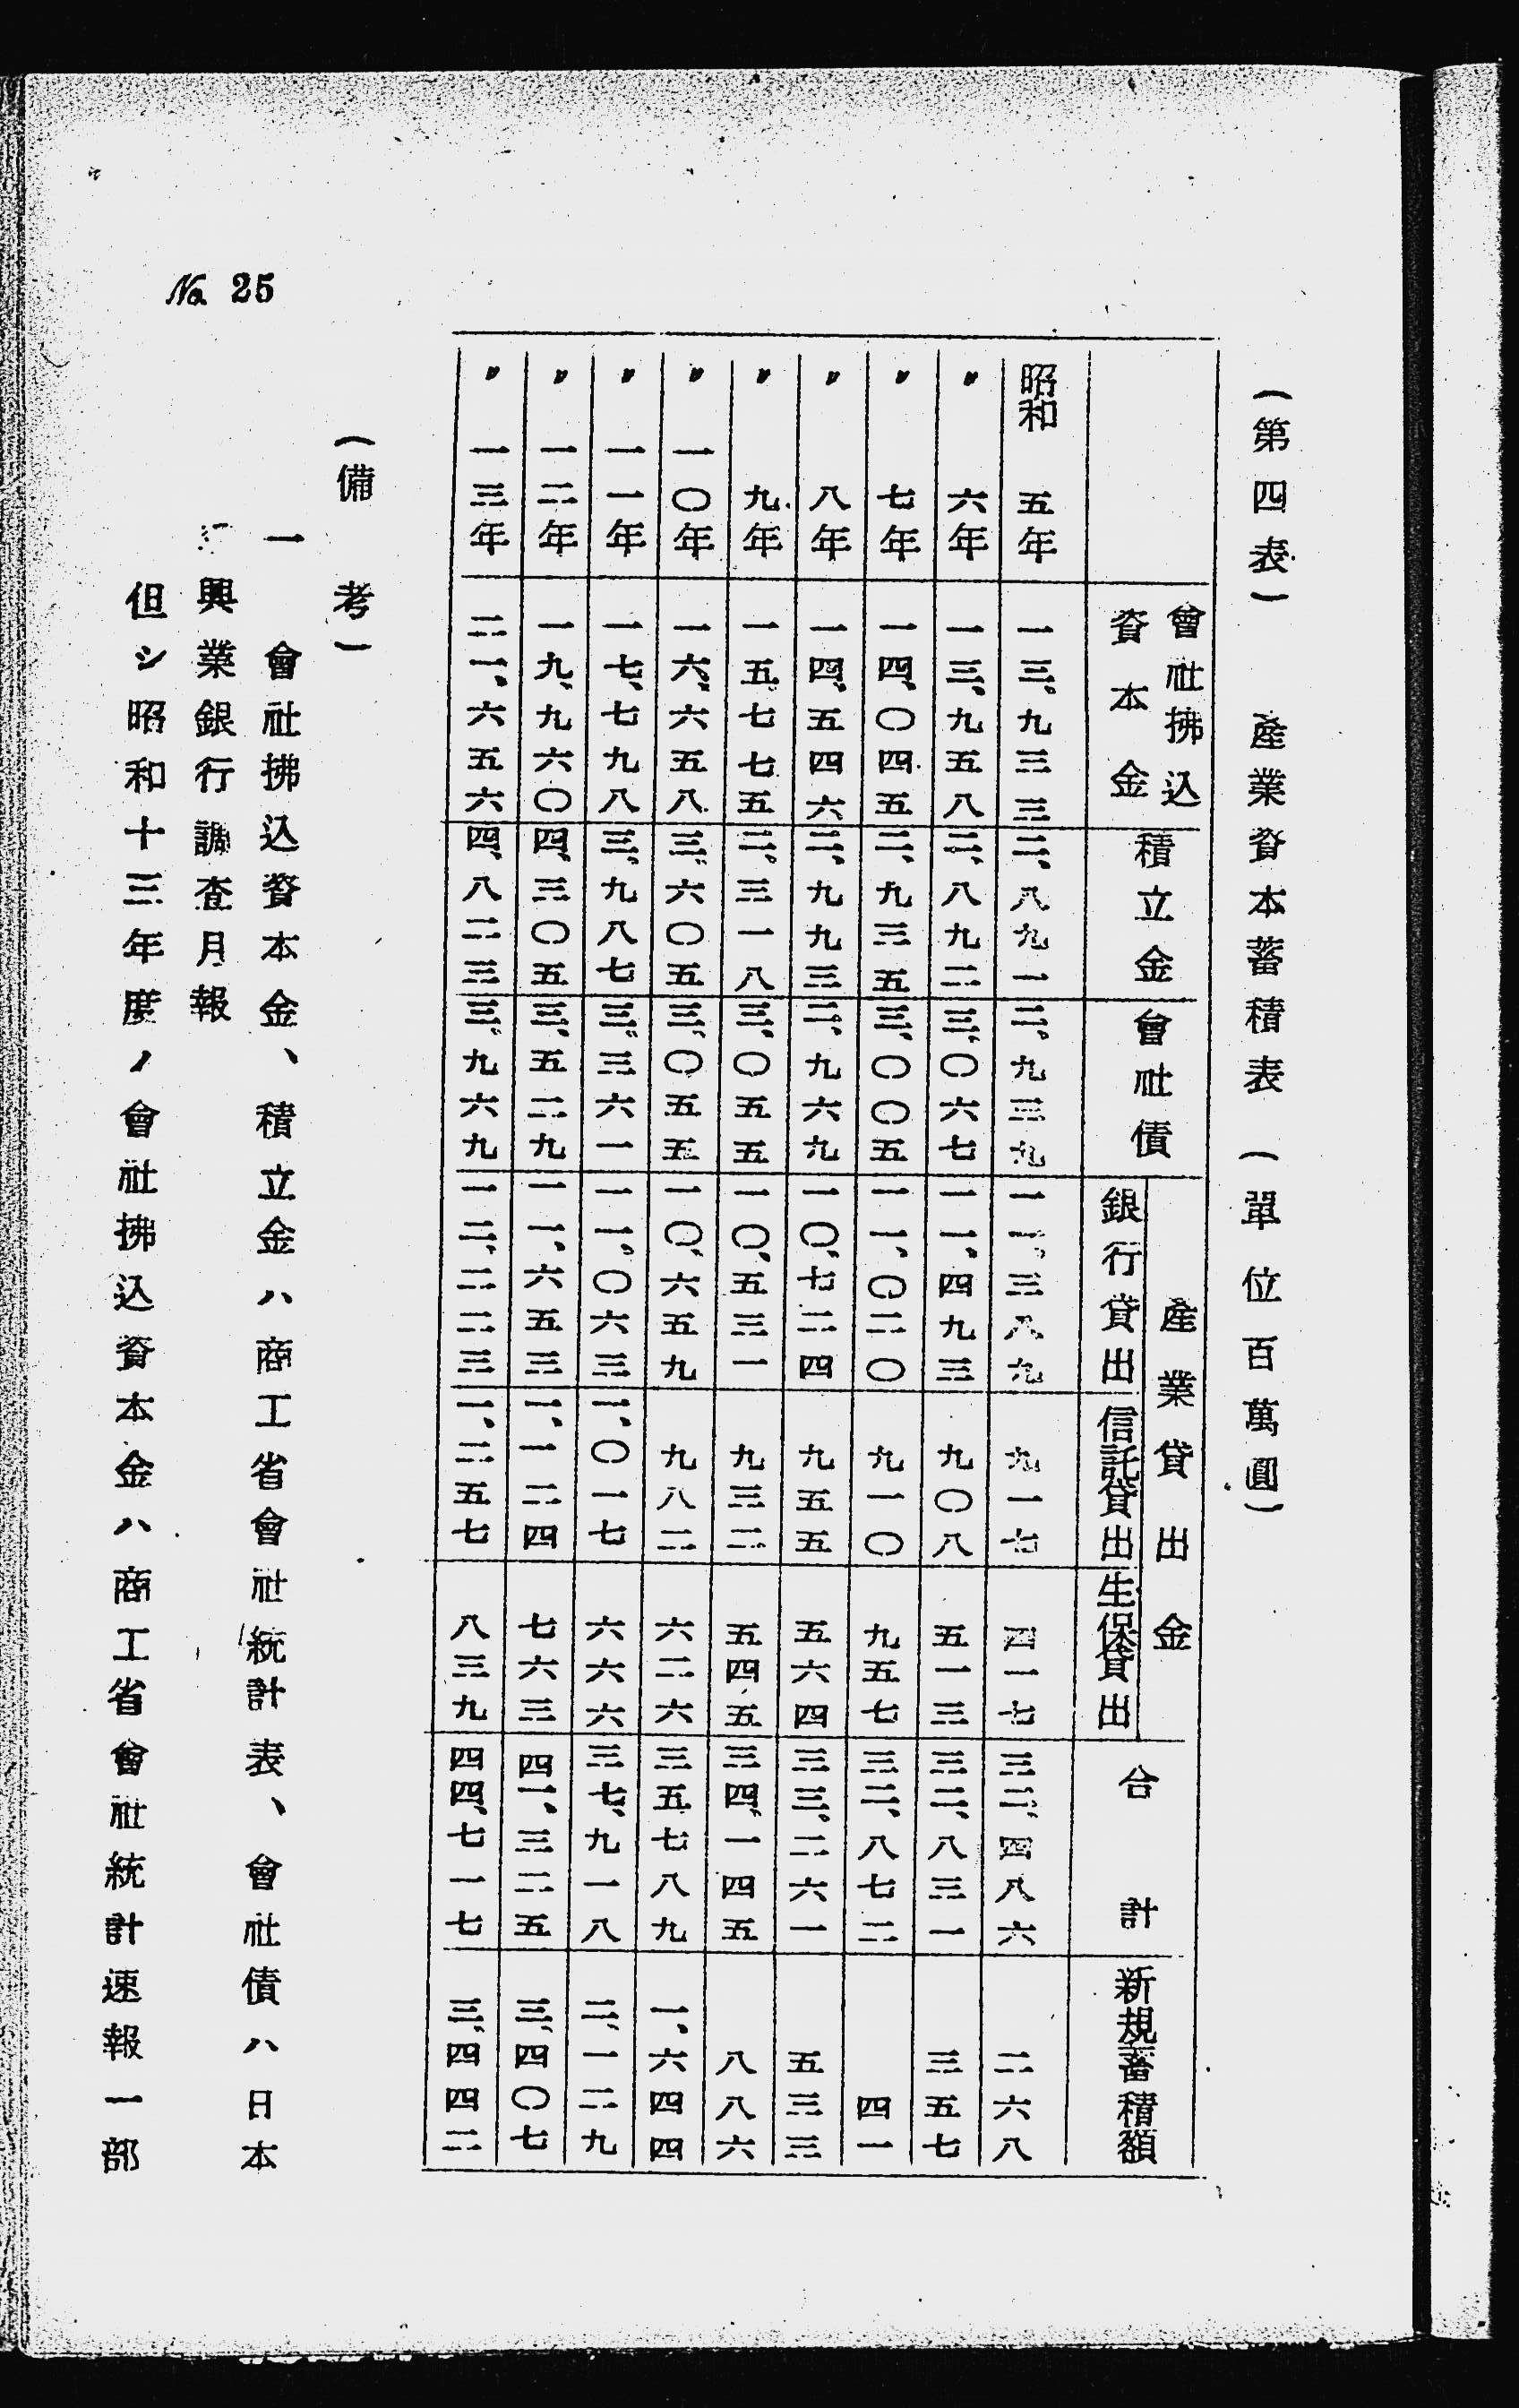 (第四表) 產業資本蓄積表 (單位百萬圓)
會社拂込資本金 積立金 會社債 產業貸出金 銀行貸出 信託貸出 生保貸出 合計 新規蓄積額
昭和 五年 一三、九三三 二、八九一 二、九三九 一一、三八九 九一七 四一七 三二、四八六 二六八
〃 六年 一三、九五八 二、八九二 三、〇六七 一一、四九三 九〇八 五一三 三二、八三一 三五七
〃 七年 一四、〇四五 二、九三五 三、〇〇五 一一、〇二〇 九一〇 九五七 三二、八七二 四一
〃 八年 一四、五四六 二、九九三 二、九六九 一〇、七二四 九五五 五六四 三三、二六一 五三三
〃 九年 一五、七七五 二、三一八 三、〇五五 一〇、五三一 九三二 五四五 三四、一四五 八八六
〃 一〇年 一六、六五八 三、六〇五 三、〇五五 一〇、六五九 九八二 六二六 三五七八九 一、六四四
〃 一一年 一七、七九八 三、九八七 三、三六一 一一、〇六三 一、〇一七 六六六 三七、九一八 二、一二九
〃 一二年 一九、九六〇 四、三〇五 三、五二九 一一、六五三 一、一二四 七六三 四一、三二五 三、四〇七
〃 一三年 二一、六五六 四、八二三 三、九六九 一二、二二三 一、二五七 八三九 四四、七一七 三、四四二
(備考)
一 會社拂込資本金、積立金ハ商工省會社統計表、會社債ハ日本
興業銀行調査月報
但シ昭和十三年度ノ會社拂込資本金ハ商工省會社統計速報一部
No 25